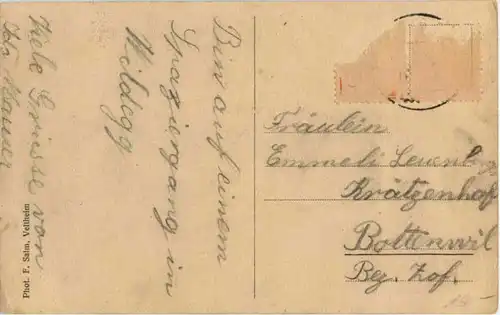 Bin auf einem
Spaziergang in
Wildegg
Viele Grüsse von
Fräulein
Emmeli
Krätzenhof
Bottenwil
Bez. Zof.
Phot. F. Salm, Veltheim